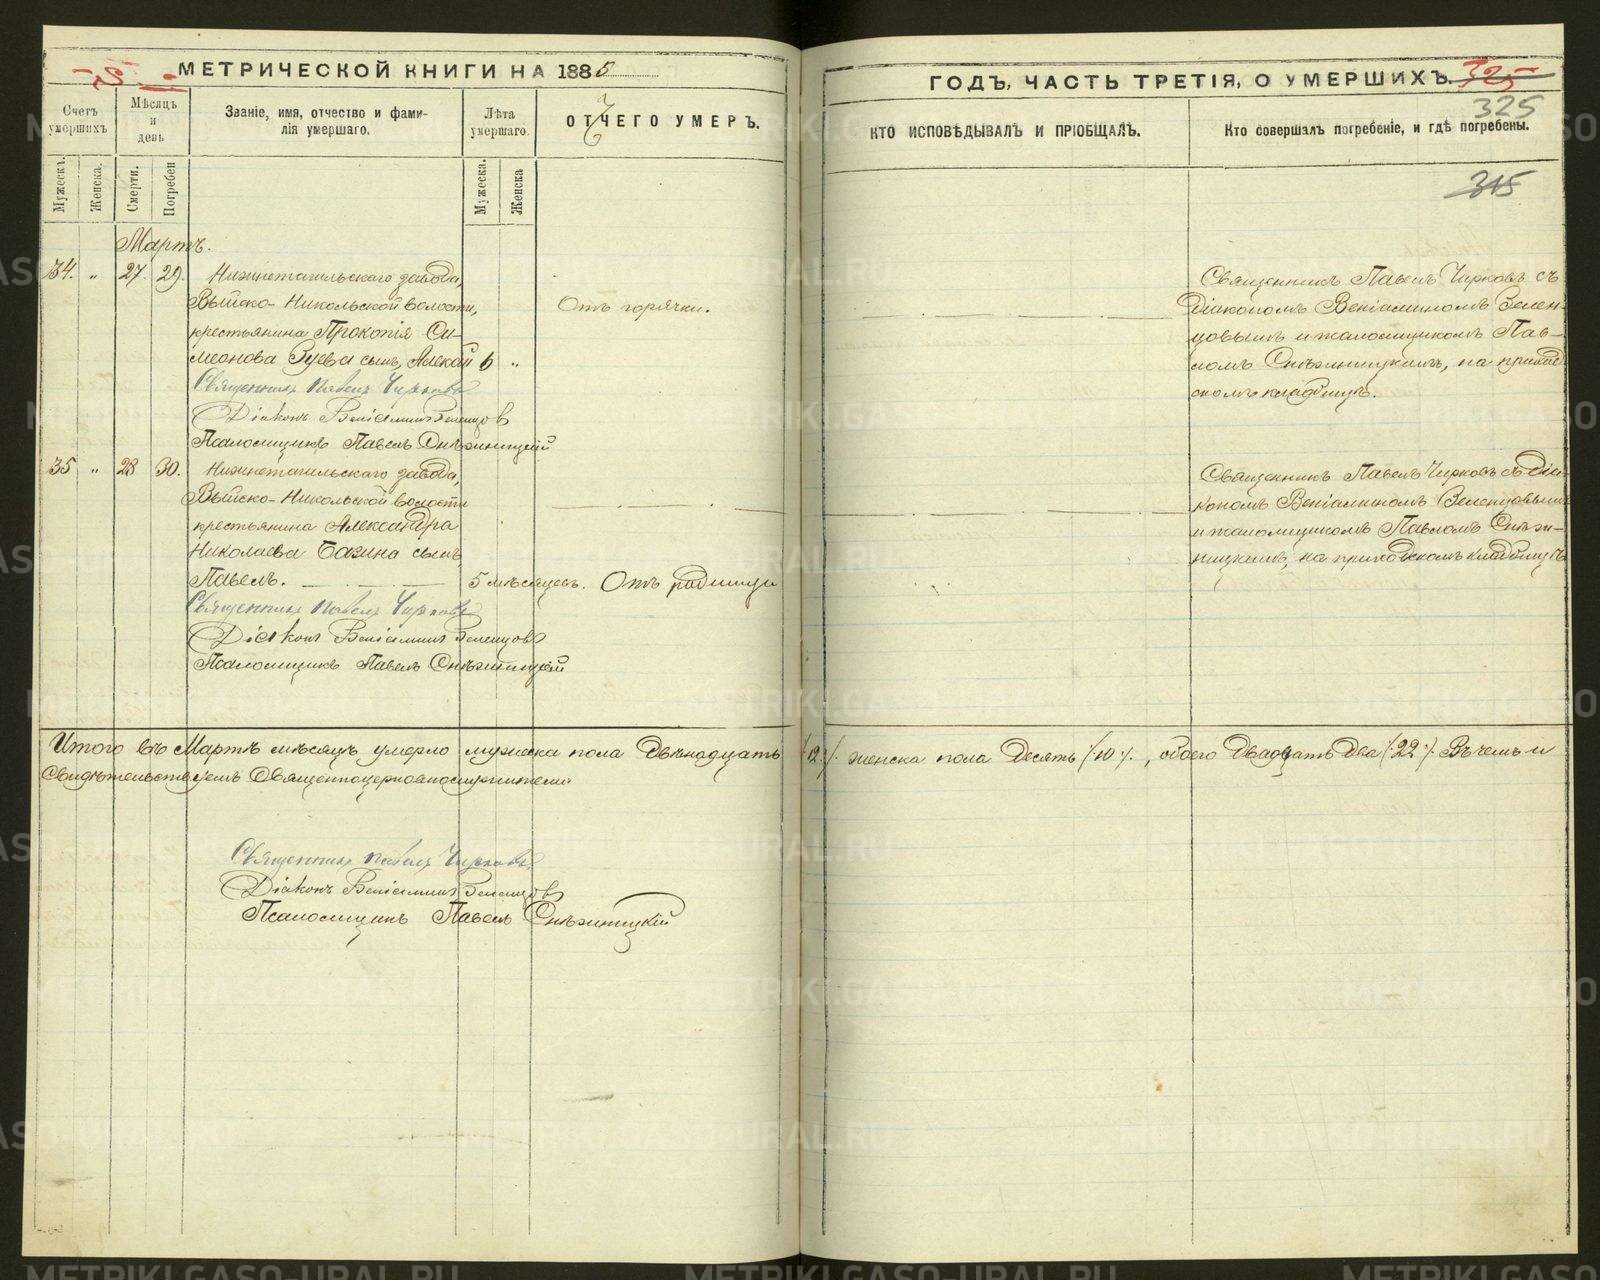 МЕТРИЧЕСКОЙ КНИГИ НА 1885
ГОДЪ, ЧАСТЬ ТРЕТІЯ, О УМЕРШИХЪ.
325
325
315
Счетъ умершихъ
Мѣсяцъ и день
Званіе, имя, отчество и фамилія умершаго.
Лѣта умершаго.
ОТЧЕГО УМЕРЪ.
КТО ИСПОВѢДЫВАЛЪ И ПРІОБЩАЛЪ.
Кто совершалъ погребеніе, и гдѣ погребены.
Мужеск.
Женска.
Смерти.
Погребен
Мужеска.
Женска
Мартъ.
34. " 27. 29. Нижнетагильскаго завода,
Выйско-Никольской волости,
крестьянина Прокопія Си-
меонова Гуева сынъ, Алексѣй 6 "
Отъ горячки.
Священникъ Павелъ Чирковъ съ
Діакономъ Веніаминомъ Зелен-
цовымъ и псаломщикомъ Пав-
ломъ Снѣжницкимъ, на приход-
скомъ кладбищѣ.
Священникъ Павелъ Чирковъ
Діаконъ Веніаминъ Зеленцовъ
Псаломщикъ Павелъ Снѣжницкій
35 " 28 30. Нижнетагильскаго завода,
Выйско-Никольской волости
крестьянина Александра
Николаева Базина сынъ
Павелъ. 5 мѣсяцевъ. Отъ родимца
Священникъ Павелъ Чирковъ съ Діа-
кономъ Веніаминомъ Зеленцовымъ
и псаломщикомъ Павломъ Снѣж-
ницкимъ, на приходскомъ кладбищѣ
Священникъ Павелъ Чирковъ
Діаконъ Веніаминъ Зеленцовъ
Псаломщикъ Павелъ Снѣжницкій
Итого въ Мартѣ мѣсяцѣ умерло мужеска пола двѣнадцать (12). женска пола десять (10), обоего двадцать два (22). Въ чемъ и
свидѣтельствуемъ Священноцерковнослужители
Священникъ Павелъ Чирковъ
Діаконъ Веніаминъ Зеленцовъ
Псаломщикъ Павелъ Снѣжницкій
METRIKI.GASO-URAL.RU